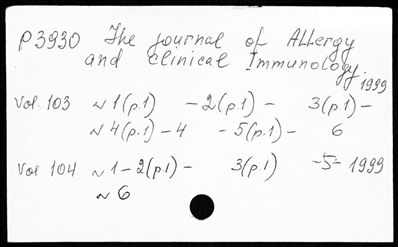 P3930 The journal of Allergy
and clinical Immunology.
1999
vol. 103 ~ 1(p.1) - 2(p.1) - 3(p.1) -
~ 4(p.1) - 4 - 5(p.1) - 6
vol 104 ~ 1 - 2(p.1) - 3(p.1) - 5 - 1999
~ 6